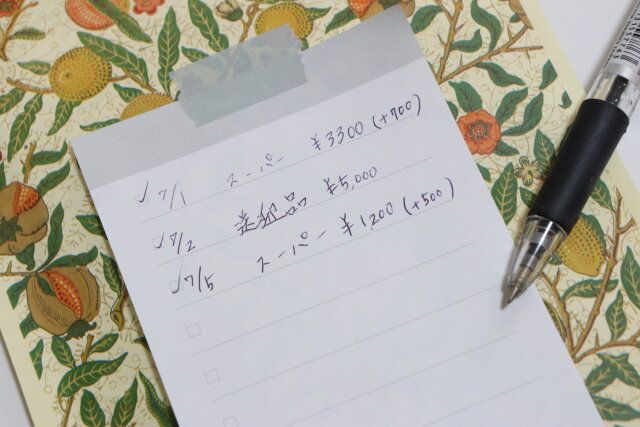 ✓ 7/1 スーパー ¥3300 (+700)
✓ 7/2 ¥5,000
✓ 7/5 スーパー ¥1,200 (+500)